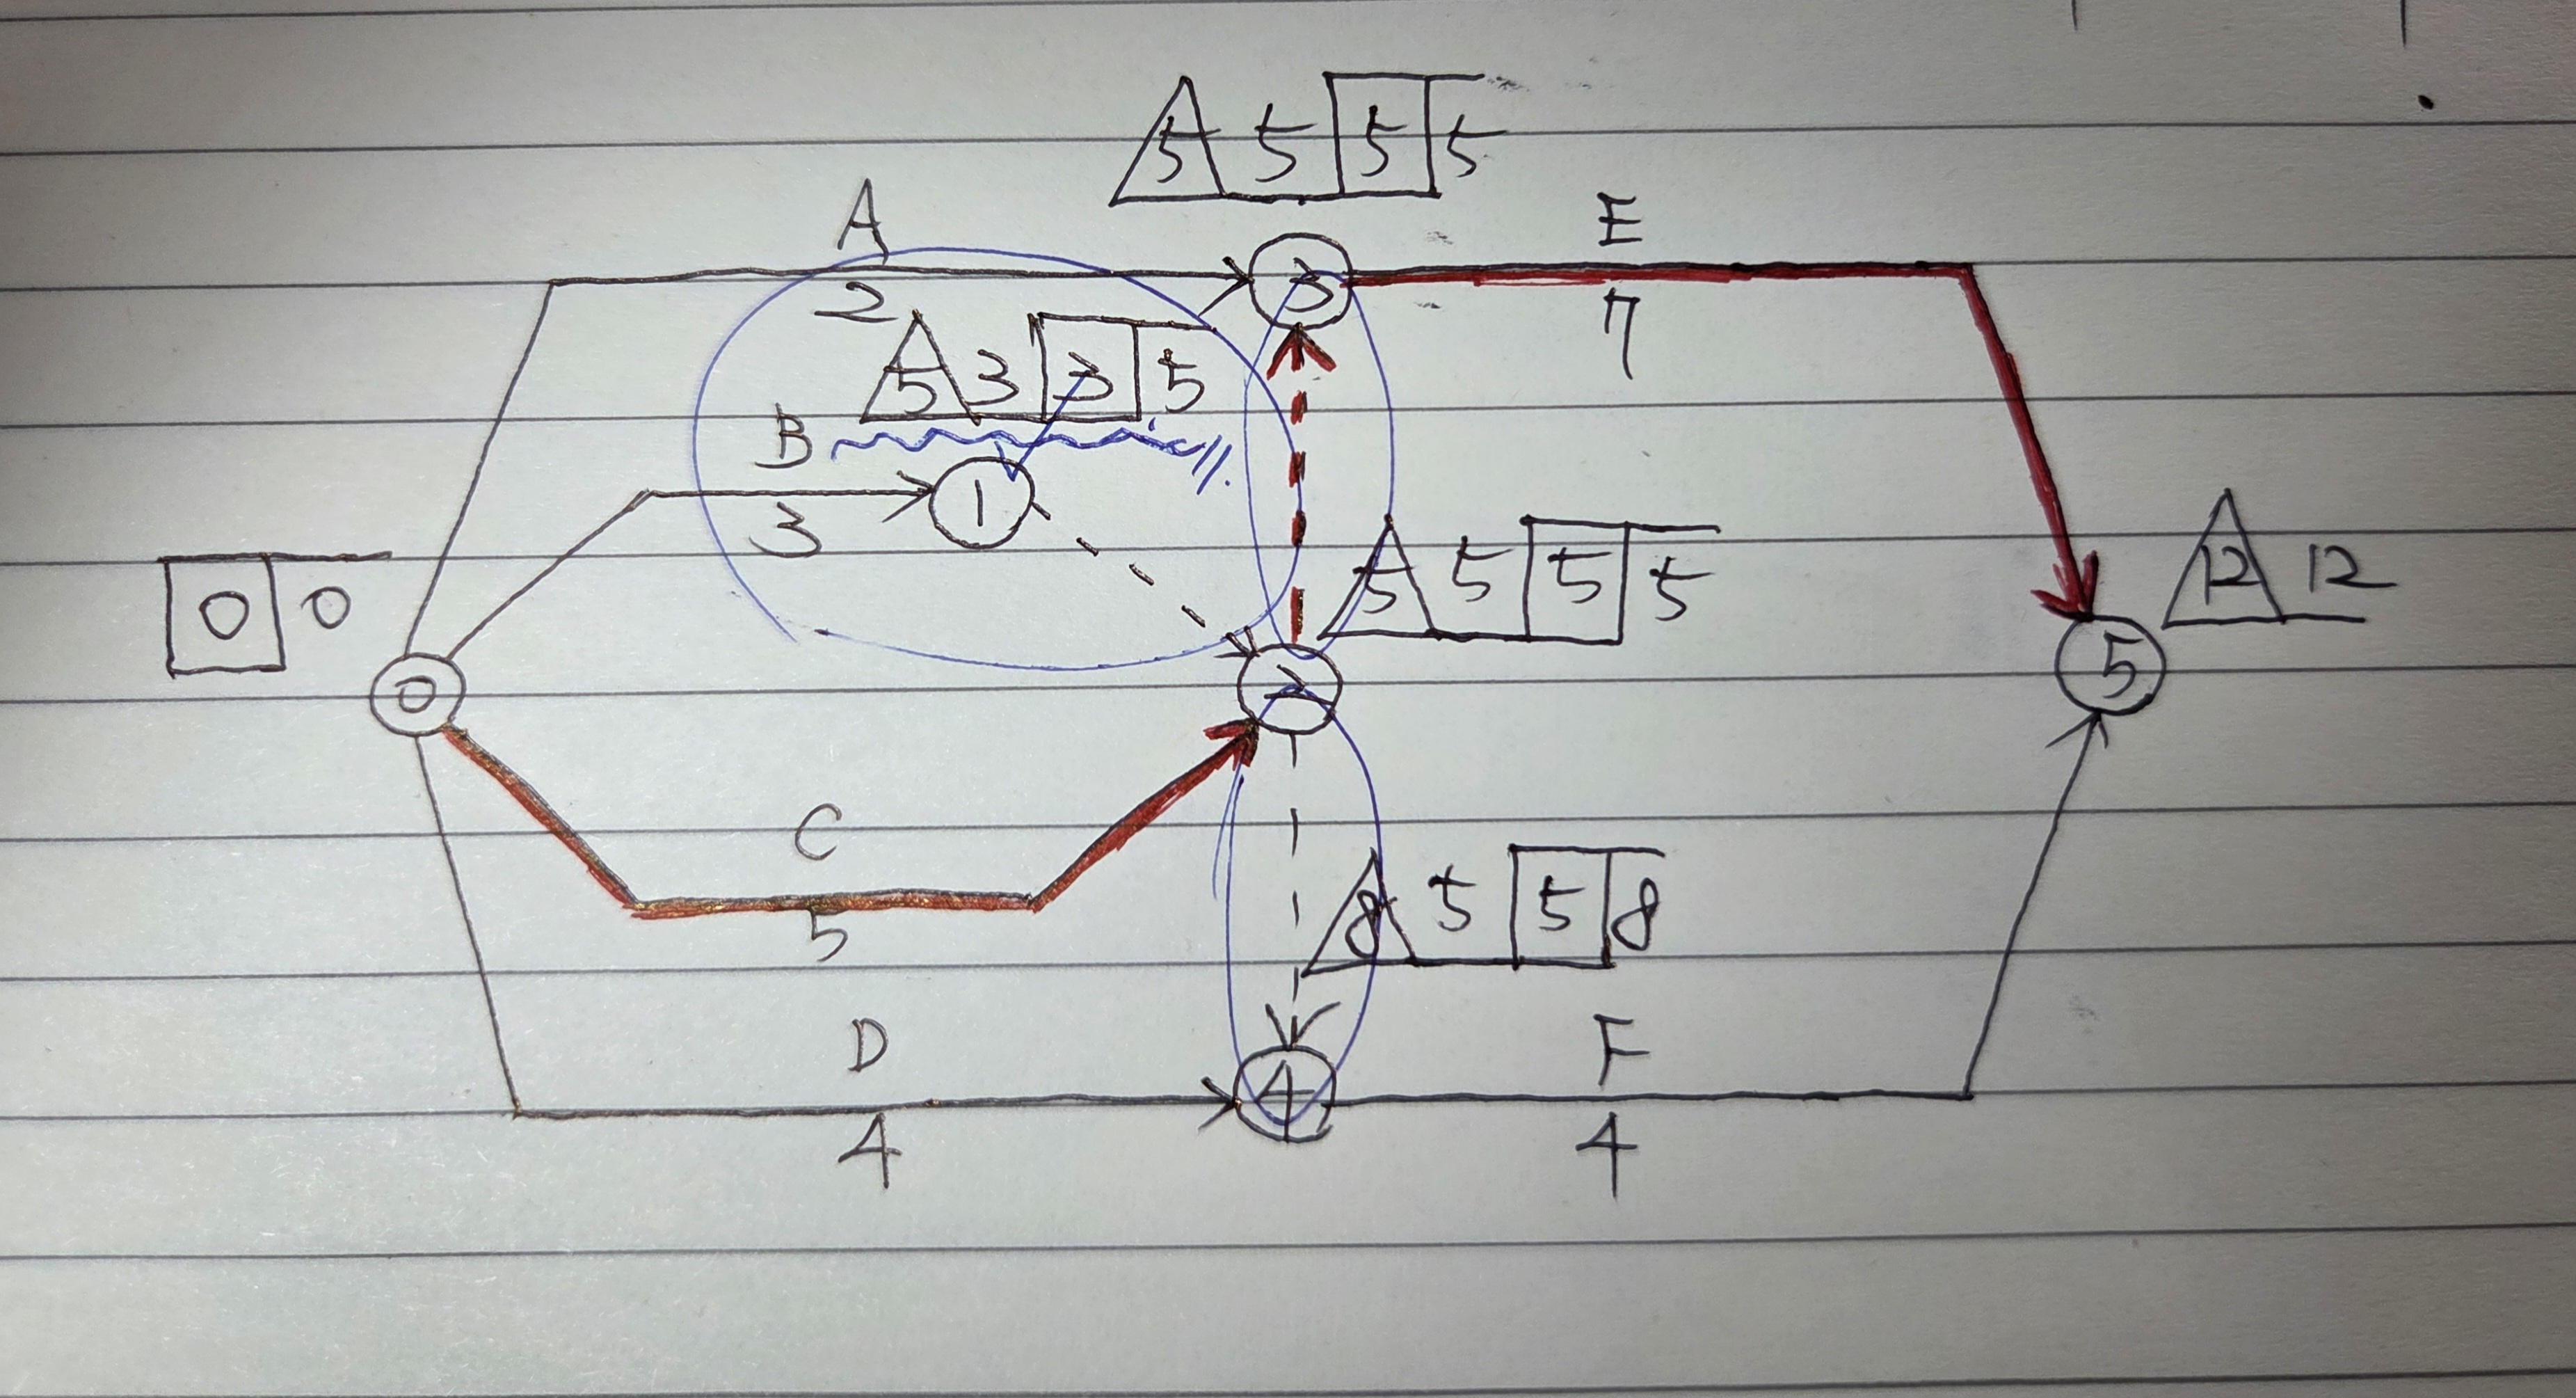 5 5 5 5
A
E
2
7
5 3 3 5
B
3
1
3
0 0
0
5 5 5 5
2
12 12
5
C
5
8 5 5 8
D
F
4
4
4